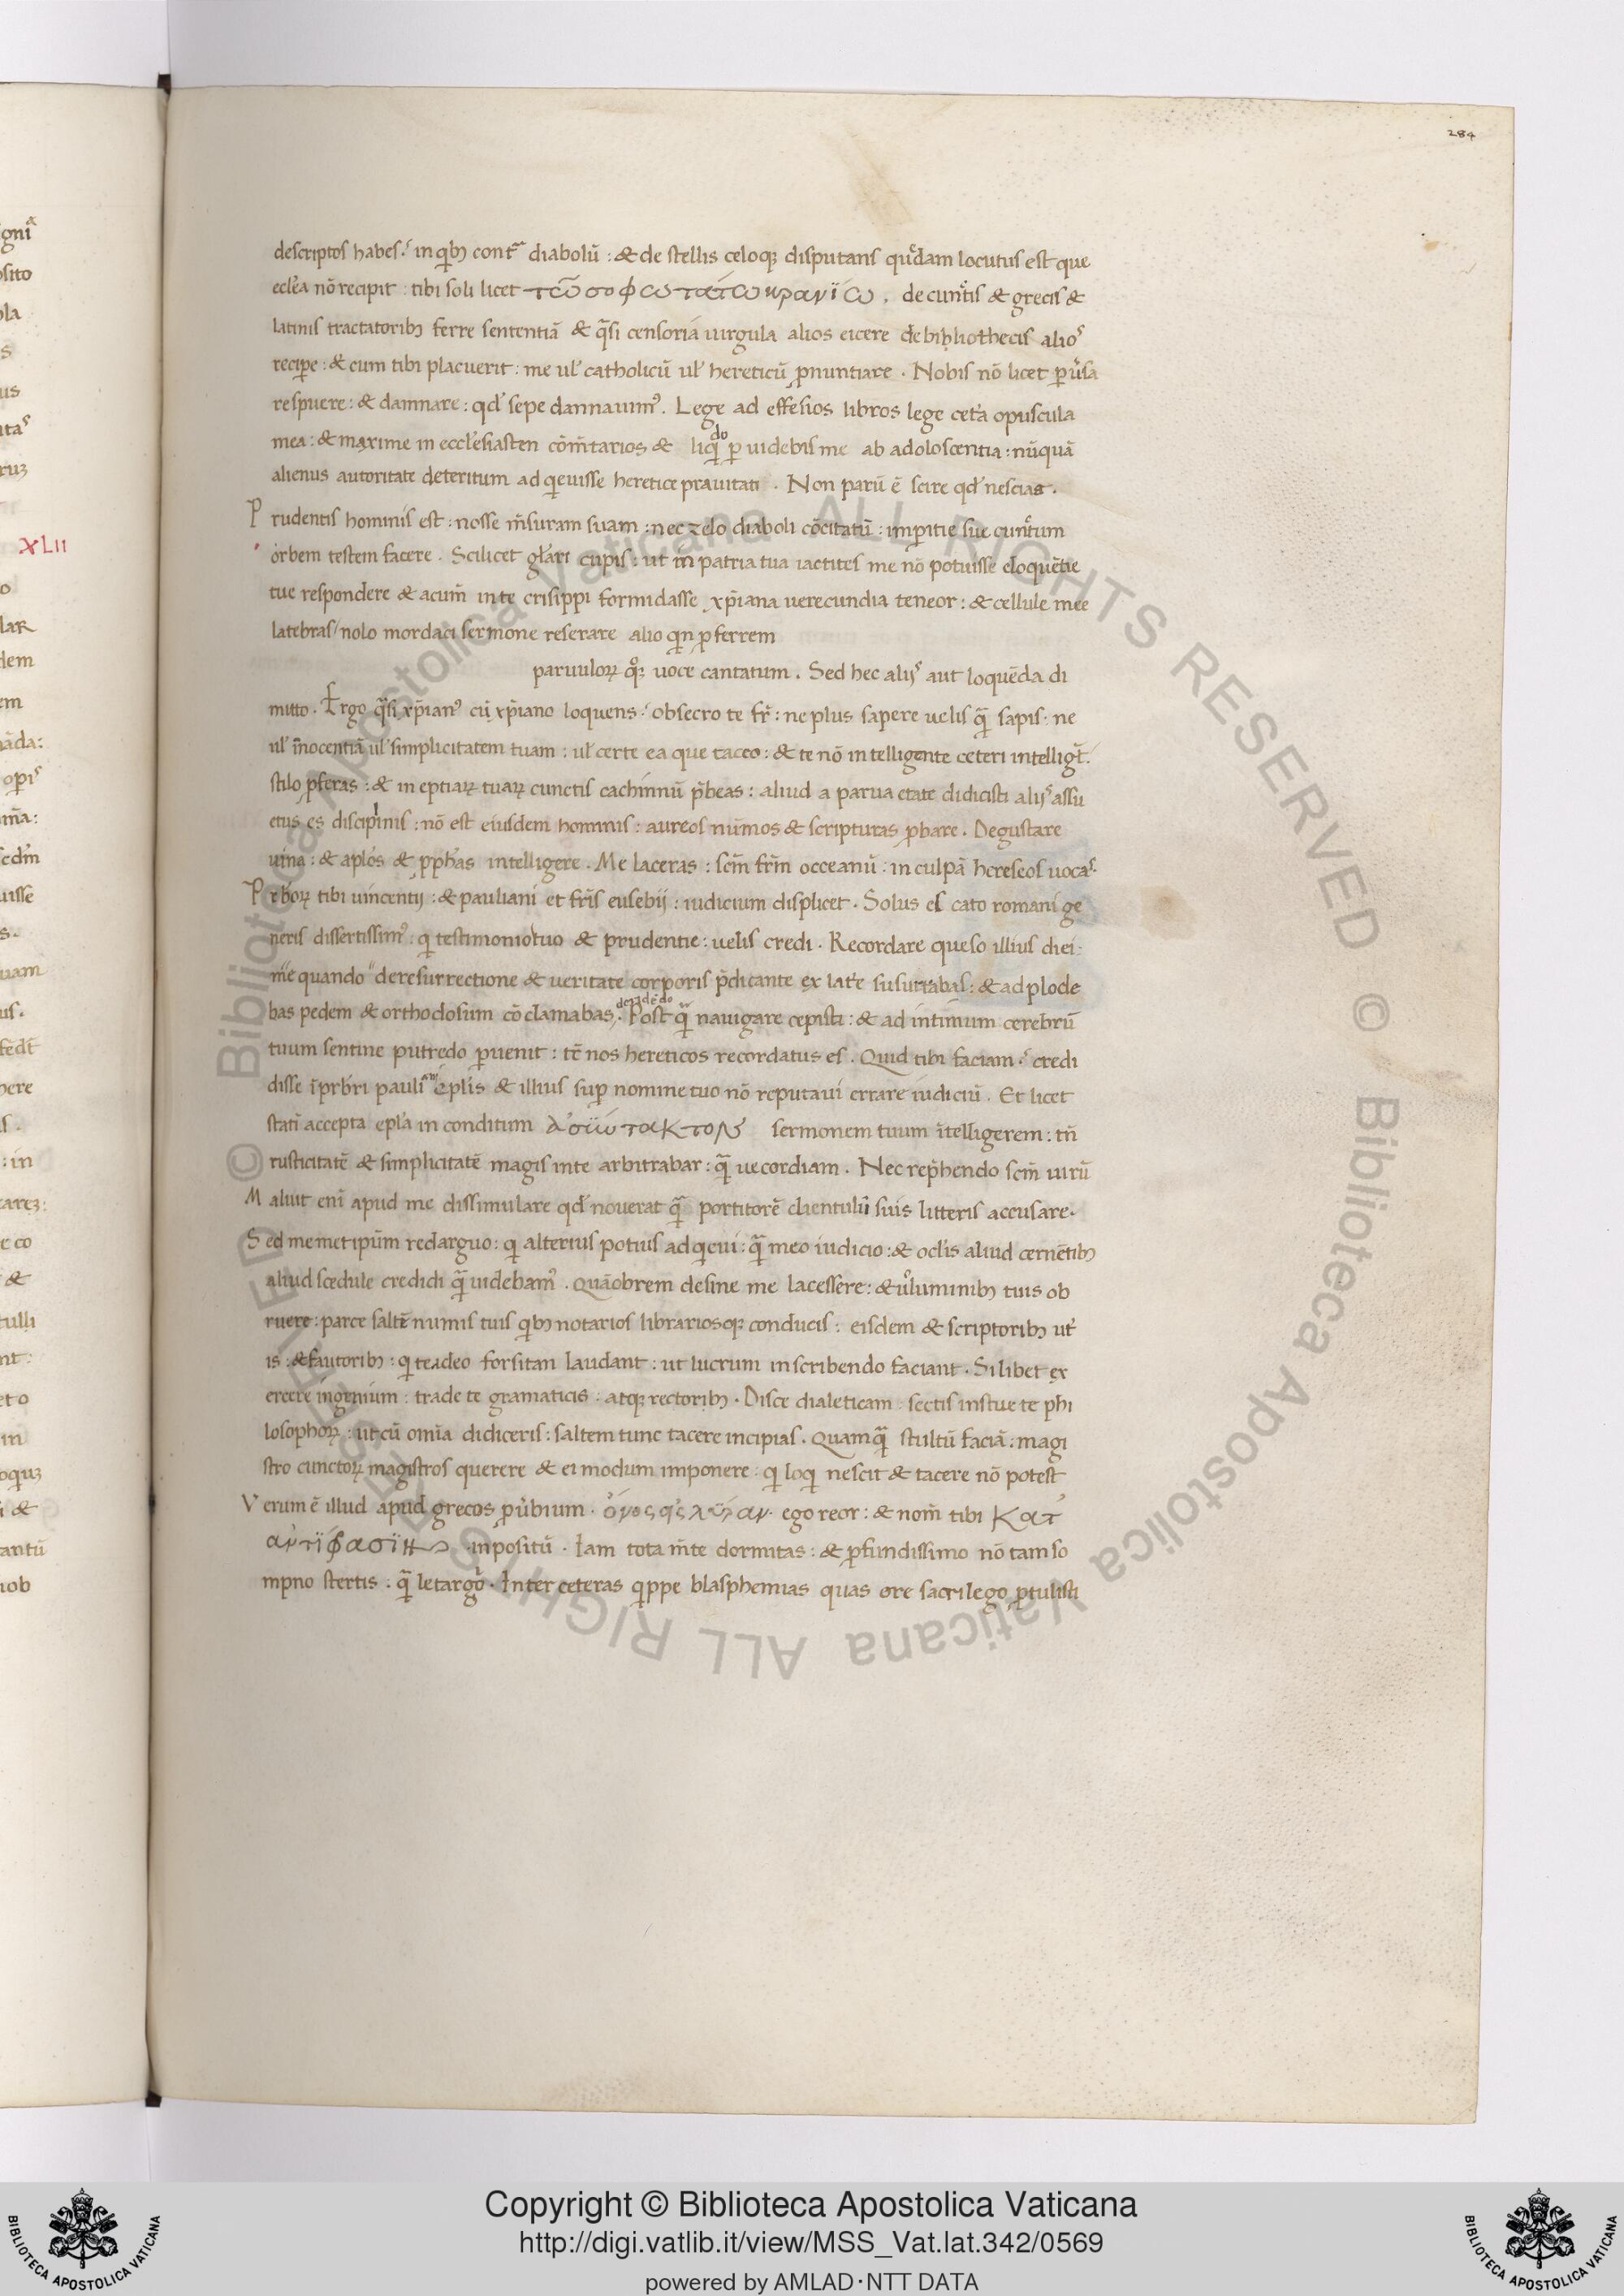 284
descriptos habes. in qib; contᵃ diabolū : & de stellis celoq; disputans qͣdam locutus est que
ecl'ia nō recipit : tibi soli licet τῶ σοφωτάτω κρανίω, de cunᶜtis & grecis &
latinis tractatorib; ferre sententiā & qͣsi censoria uirgula alios eicere de bibliothecis alioˢ
recipe : & cum tibi placuerit : me ul' catholicū ul' hereticū ꝓnuntiare . Nobis nō licet ꝑuͥsa
respuere : & damnare : qd' sepe dannauimꝰ. Lege ad effesios libros lege cetͣa opuscula
mea : & maxime in eccl'esiasten cōm̄tarios & liqͥdo ꝑ uidebis me ab adoloscentia : nūquā
alienus autoritate deteritum ad qͥeuisse heretice prauitati . Non parū ē scire qd' nescias .
Prudentis hominis est : nosse m̄suram suam : nec zelo diaboli cōcitatū : imꝑitie sue cunᶜtum
orbem testem facere . Scilicet gl'ari cupis : ut in patria tua iactites me nō potuisse eloquētie
tue respondere & acum̄ in te crisippi formidasse xp̄iana uerecundia teneor : & cellule mee
latebras / nolo mordaci sermone reserare alio qͥn ꝓferrem
paruuloꝝ qͦꝫ uoce cantatum . Sed hec alijˢ aut loquēda di
mitto . Ergo qͣsi xp̄ianꝰ cū xp̄iano loquens. obsecro te fr̄ : ne plus sapere uelis qͣ̄ sapis : ne
ul' īnocentiā ul' simplicitatem tuam : ul' certe ea que taceo : & te nō intelligente ceteri intelligt̄.
stilo ꝓferas : & in eptiaꝝ tuaꝝ cunctis cachinnū p̄beas : aliud a parua etate didicisti alijˢ assu
etus es discipl'inis : nō est eiusdem hominis : aureos nūmos & scripturas ꝓbare . Degustare
uina : & apl'os & ꝓph'as intelligere . Me laceras : scm̄ frm̄ occeanū : in culpā hereseos uocaˢ.
Prb'oꝝ tibi uincentij : & pauliani et fr̄is eusebij : iudicium displicet . Solus es cato romani ge
neris dissertissimꝰ : qͥ testimonio tuo & prudentie : uelis credi . Recordare queso illius diei .
me quando de resurrectione & ueritate corporis p̄dicante ex latͤe susurrabas : & adplode
bas pedem & orthodosum cōclamabas . Postqͣ̄ nauigare cepisti : & ad intimum cerebrū
tuum sentine putredo ꝑuenit : tc̄ nos hereticos recordatus es . Quid tibi faciam . credi
disse ī prb'ri pauli epl'is & illius suꝑ nomine tuo nō reputaui errare iudiciū . Et licet
statī accepta epl'a in conditum ἀσύντακτον sermonem tuum ītelligerem : tn̄
rusticitatē & simplicitatē magis in te arbitrabar : qͣ̄ uecordiam . Nec rep̄hendo scm̄ uirū
Maluit enī apud me dissimulare qd' nouerat qͣ̄ portitorē clientulū suis litteris accusare .
Sed memetip̄m redarguo : qͥ alterius potius adqͥeui : qͣ̄ meo iudicio : & ocl'is aliud cernētib;
aliud scedule credidi qͣ̄ uidebamꝰ . Quāobrem desine me lacessere : & uͦluminib; tuis ob
ruere : parce saltē numis tuis qͥb; notarios librariosq; conducis : eisdem & scriptorib; utͥ
is : & fautorib; : qͥ te adeo forsitan laudant : ut lucrum in scribendo faciant . Si libet ex
ercere ingenium : trade te gramaticis : atq; rectorib; . Disce dialeticam : sectis instue te phi
losophoꝝ : ut cū omīa didiceris : saltem tunc tacere incipias . Quamqͣ̄ stultū faciā : magi
stro cunctoꝝ magistros querere & ei modum imponere : qͥ loqͥ nescit & tacere nō potest
Verum ē illud apud grecos ꝓuͤbium . ὄνος λύραν . ego reor : & nom̄ tibi κατ'
αντίφασιν inpositū . Iam tota m̄te dormitas : & ꝓfundissimo nō tam so
mpno stertis : qͣ̄ letargͦ . Inter ceteras qͥppe blasphemias quas ore sacrilego ꝓtulisti
XLII
© Biblioteca Apostolica Vaticana ALL RIGHTS RESERVED © Biblioteca Apostolica Vaticana ALL RIGHTS RESERVED
Copyright © Biblioteca Apostolica Vaticana
http://digi.vatlib.it/view/MSS_Vat.lat.342/0569
powered by AMLAD·NTT DATA
BIBLIOTECA APOSTOLICA VATICANA
BIBLIOTECA APOSTOLICA VATICANA